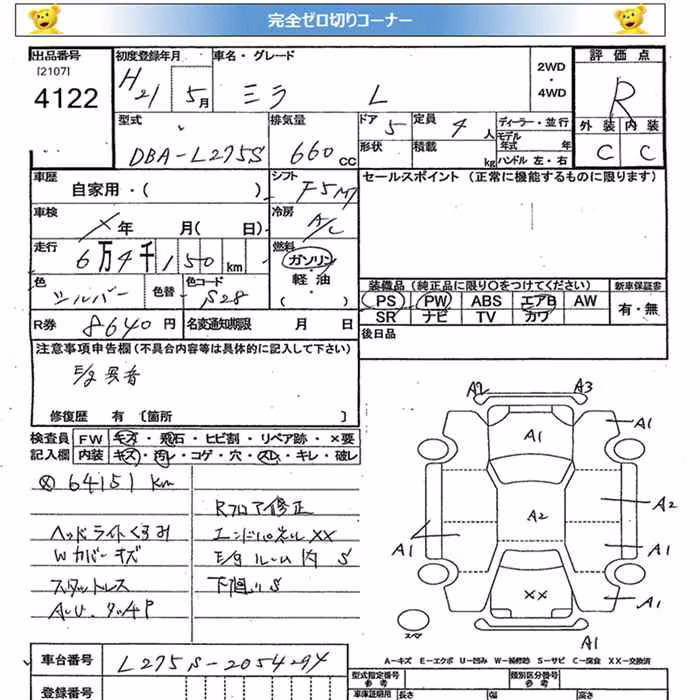 完全ゼロ切りコーナー
出品番号 初度登録年月 車名・グレード 2WD ・ 4WD 評価点
[2107]
4122 H21 5月 ミラ L R
型式 排気量 ドア 5 定員 4人 ディーラー・並行 外装 内装
DBA-L275S 660cc 形状 積載 kg モデル年式 年 C C
ハンドル 左・右
車歴 自家用・( ) シフト F5M セールスポイント (正常に機能するものに限ります)
車検 × 年 月( 日) 冷房 A/C
走行 6万4千150km 燃料 ガソリン
軽油
・( )
色 シルバー 色替 色コード S28
装備品 (純正品に限り○をつけてください) 新車保証書
PS PW ABS エアB AW 有・無
SR ナビ TV カワ
R券 8640円 名変通知期限 月 日 後日品
注意事項申告欄 (不具合内容等は具体的に記入して下さい)
E/g異音
修復歴 有 [箇所 ]
検査員 FW キズ・飛石・ヒビ割・リペア跡・×要
記入欄 内装 キズ・汚レ・コゲ・穴・スレ・キレ・破レ
64151km
Rフロア修正
ヘッドライトくすみ エンドパネルXX
Wカバーキズ E/gルーム内S
スタットレス 下廻りS
A2 A3
A1 A1
A2 A2
A1 A1
XX A1
スペア A1
A-キズ E-エクボ U-凹み W-補修跡 S-サビ C-腐食 XX-交換済
車台番号 L275S-2054294
型式指定番号 参考 類別区分番号 参考
登録番号 車庫証明用 長さ 幅 高さ